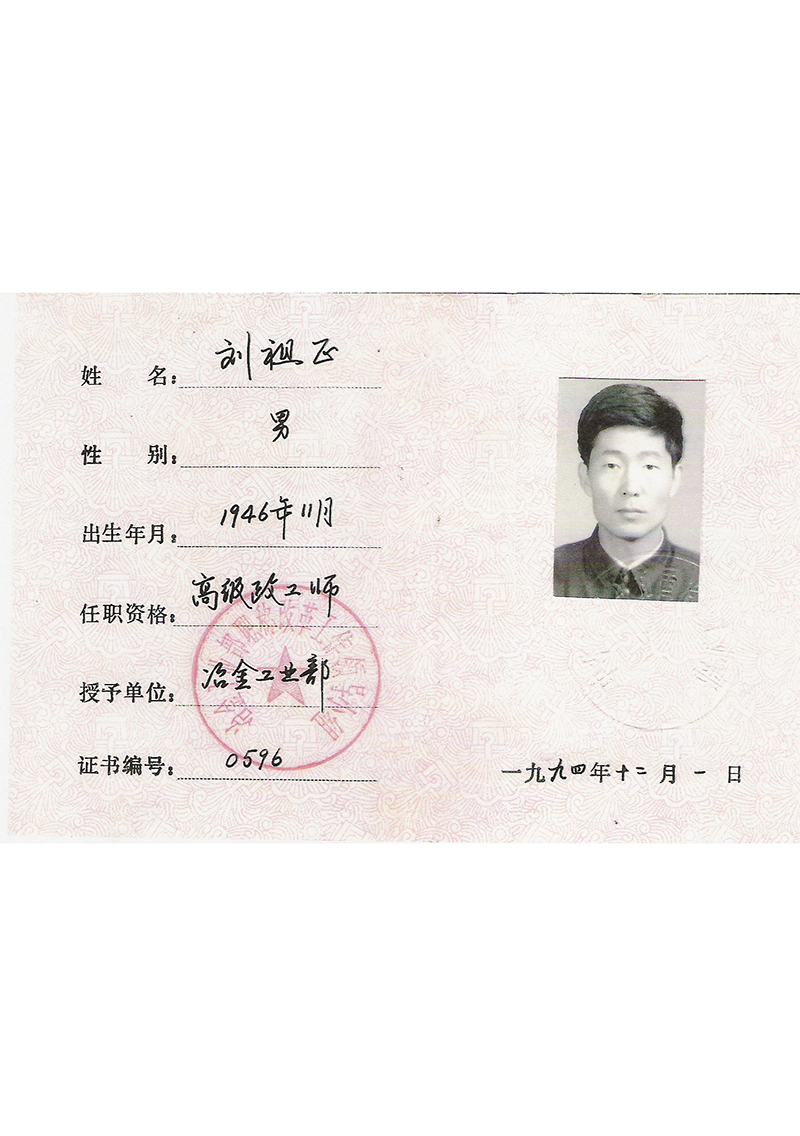 姓 名：刘祖正
性 别：男
出生年月：1946年11月
任职资格：高级政工师
授予单位：冶金工业部
证书编号：0596
一九九四年十二月一日